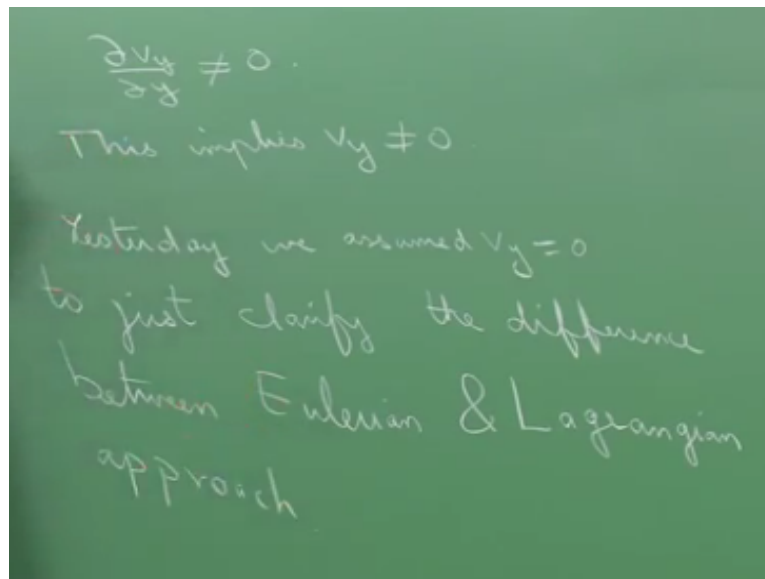 ∂Vy/∂y ≠ 0.
This implies Vy ≠ 0.
Yesterday we assumed Vy = 0
to just clarify the difference
between Eulerian & Lagrangian
approach.